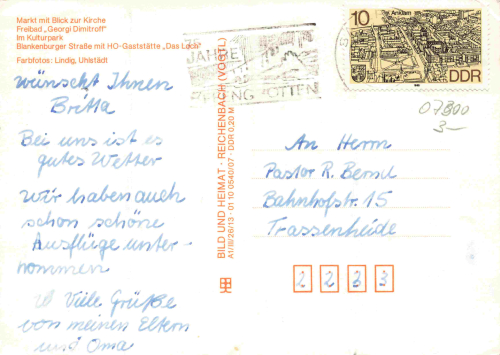 Markt mit Blick zur Kirche
Freibad „Georgi Dimitroff"
Im Kulturpark
Blankenburger Straße mit HO-Gaststätte „Das Loch"
Farbfotos: Lindig, Uhlstädt
wünscht Ihnen
Britta
Bei uns ist es
gutes Wetter
Wir haben auch
schon schöne
Ausflüge unter-
nommen
Viele Grüße
von meinen Eltern
und Oma
BILD UND HEIMAT · REICHENBACH (VOGTL)
A1/III/26/13 · 01 10 0540/07 · DDR 0,20 M
JAHRE
10
DDR
07800
3-
An Herrn
Pastor R. Bernd
Bahnhofstr. 15
Trassenheide
2 2 3 3